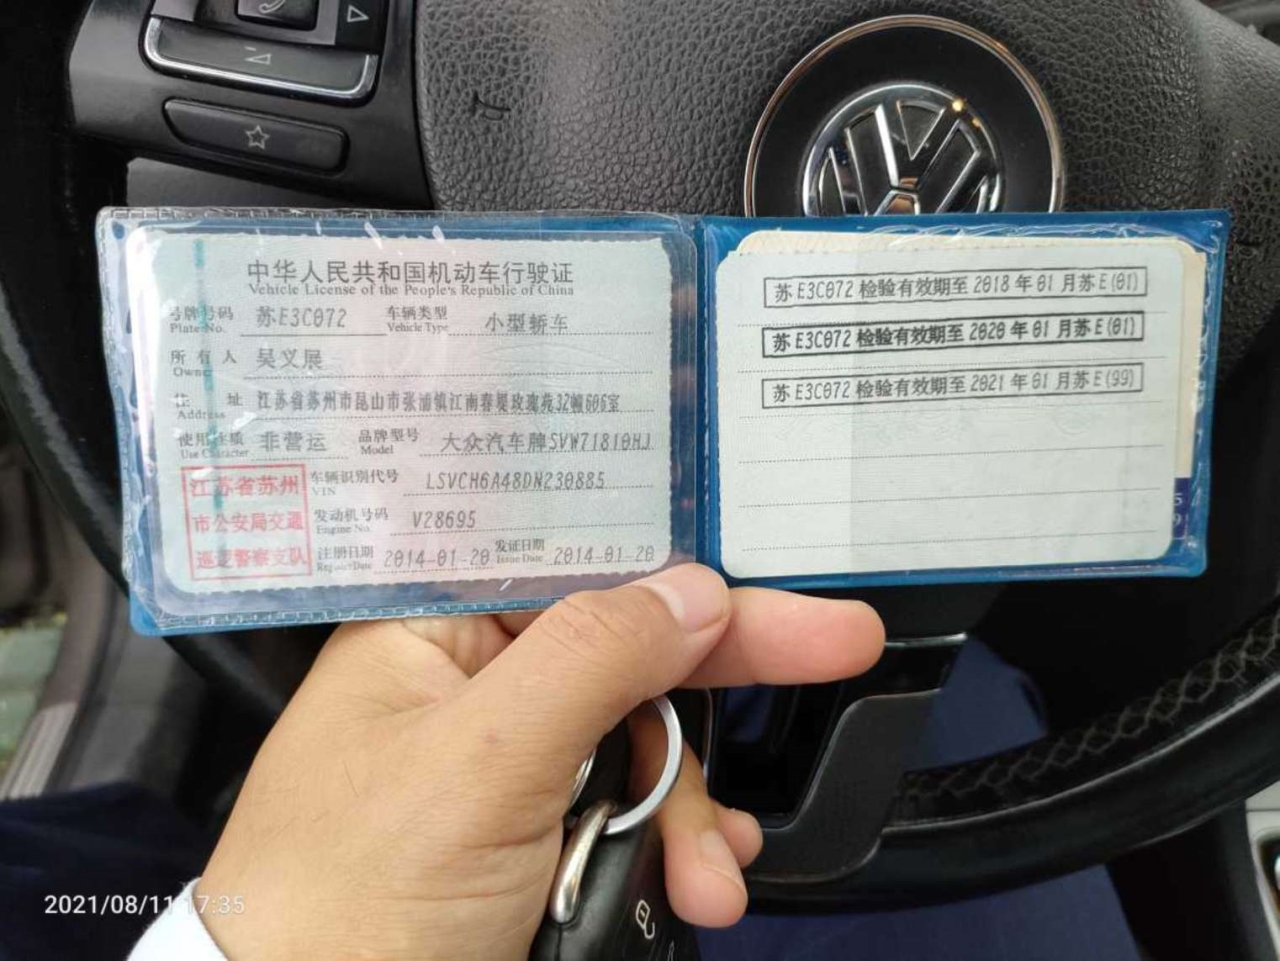 中华人民共和国机动车行驶证
Vehicle License of the People's Republic of China
号牌号码 苏E3C072 车辆类型 小型轿车
Plate No. Vehicle Type
所有人 吴义展
Owner
住址 江苏省苏州市昆山市张浦镇江南春堤玫瑰苑32幢606室
Address
使用性质 非营运 品牌型号 大众汽车牌SVW71810HJ
Use Character Model
江苏省苏州
市公安局交通
巡逻警察支队
车辆识别代号 LSVCH6A48DN230885
VIN
发动机号码 V28695
Engine No.
注册日期 2014-01-20 发证日期 2014-01-20
Register Date Issue Date
苏E3C072 检验有效期至 2018 年 01 月苏E(01)
苏E3C072 检验有效期至 2020 年 01 月苏E(01)
苏E3C072 检验有效期至 2021 年 01 月苏E(99)
2021/08/11 17:35